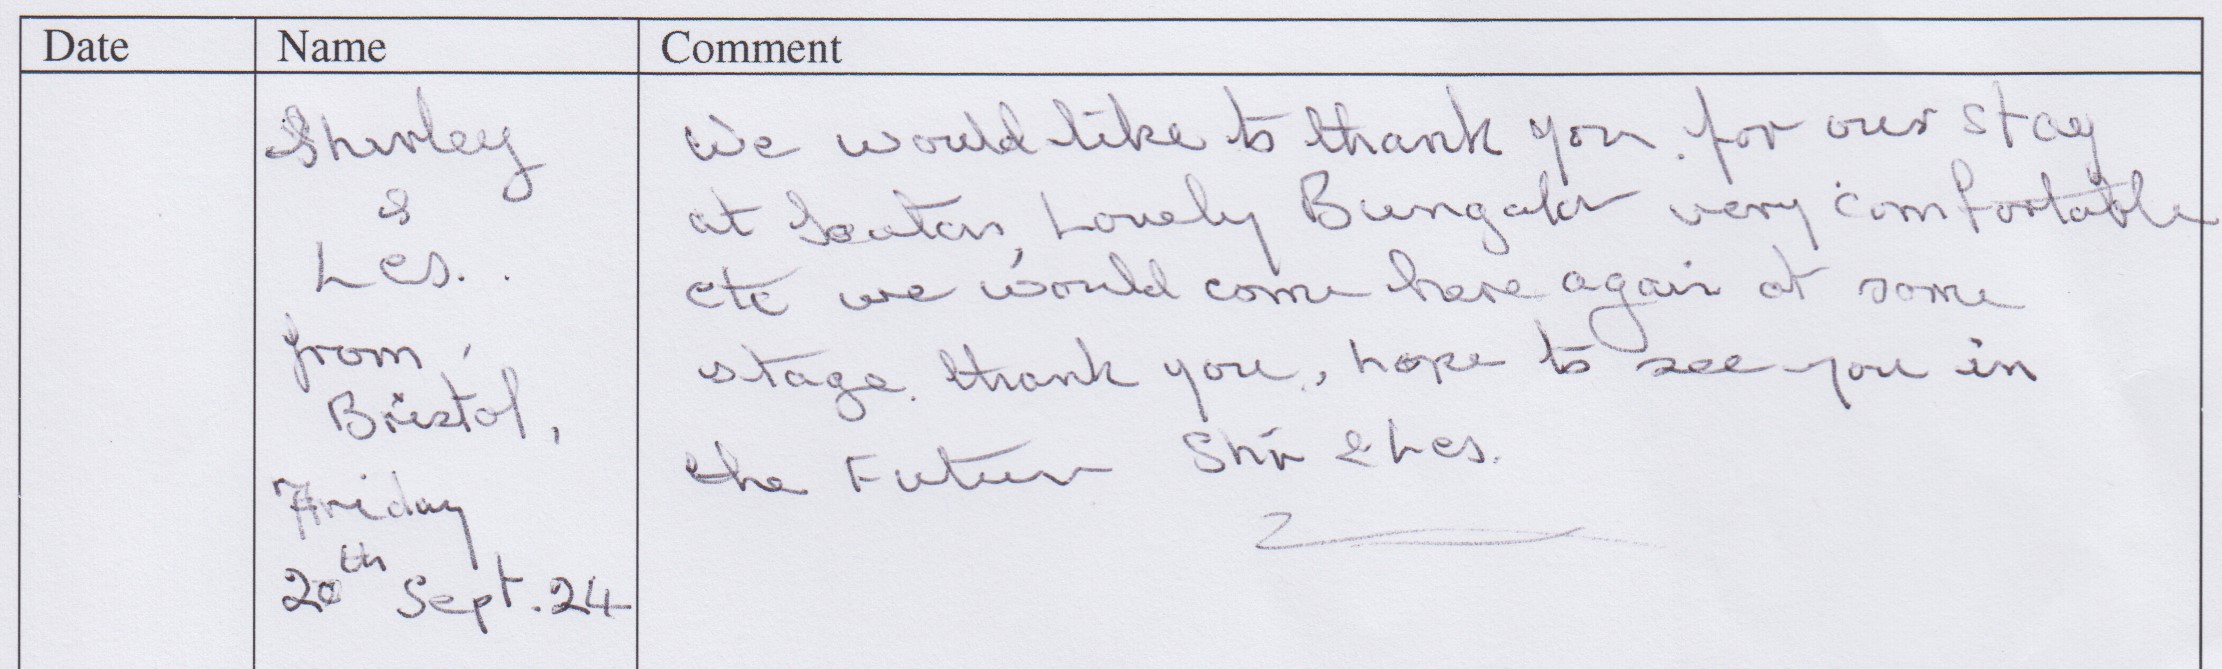 Date Name Comment
Shirley
&
Les.
from
Bristol,
Friday
20th Sept. 24
We would like to thank you for our stay
at Seaton, Lovely Bungalow very comfortable
etc we would come here again at some
stage. thank you, hope to see you in
the Future Shir & Les.